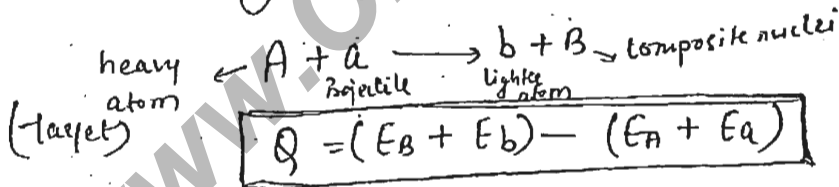 heavy atom (target) ← A + a ⟶ b + B → composite nuclei
Projectile lighter atom
Q = (E_B + E_b) − (E_A + E_a)
www.